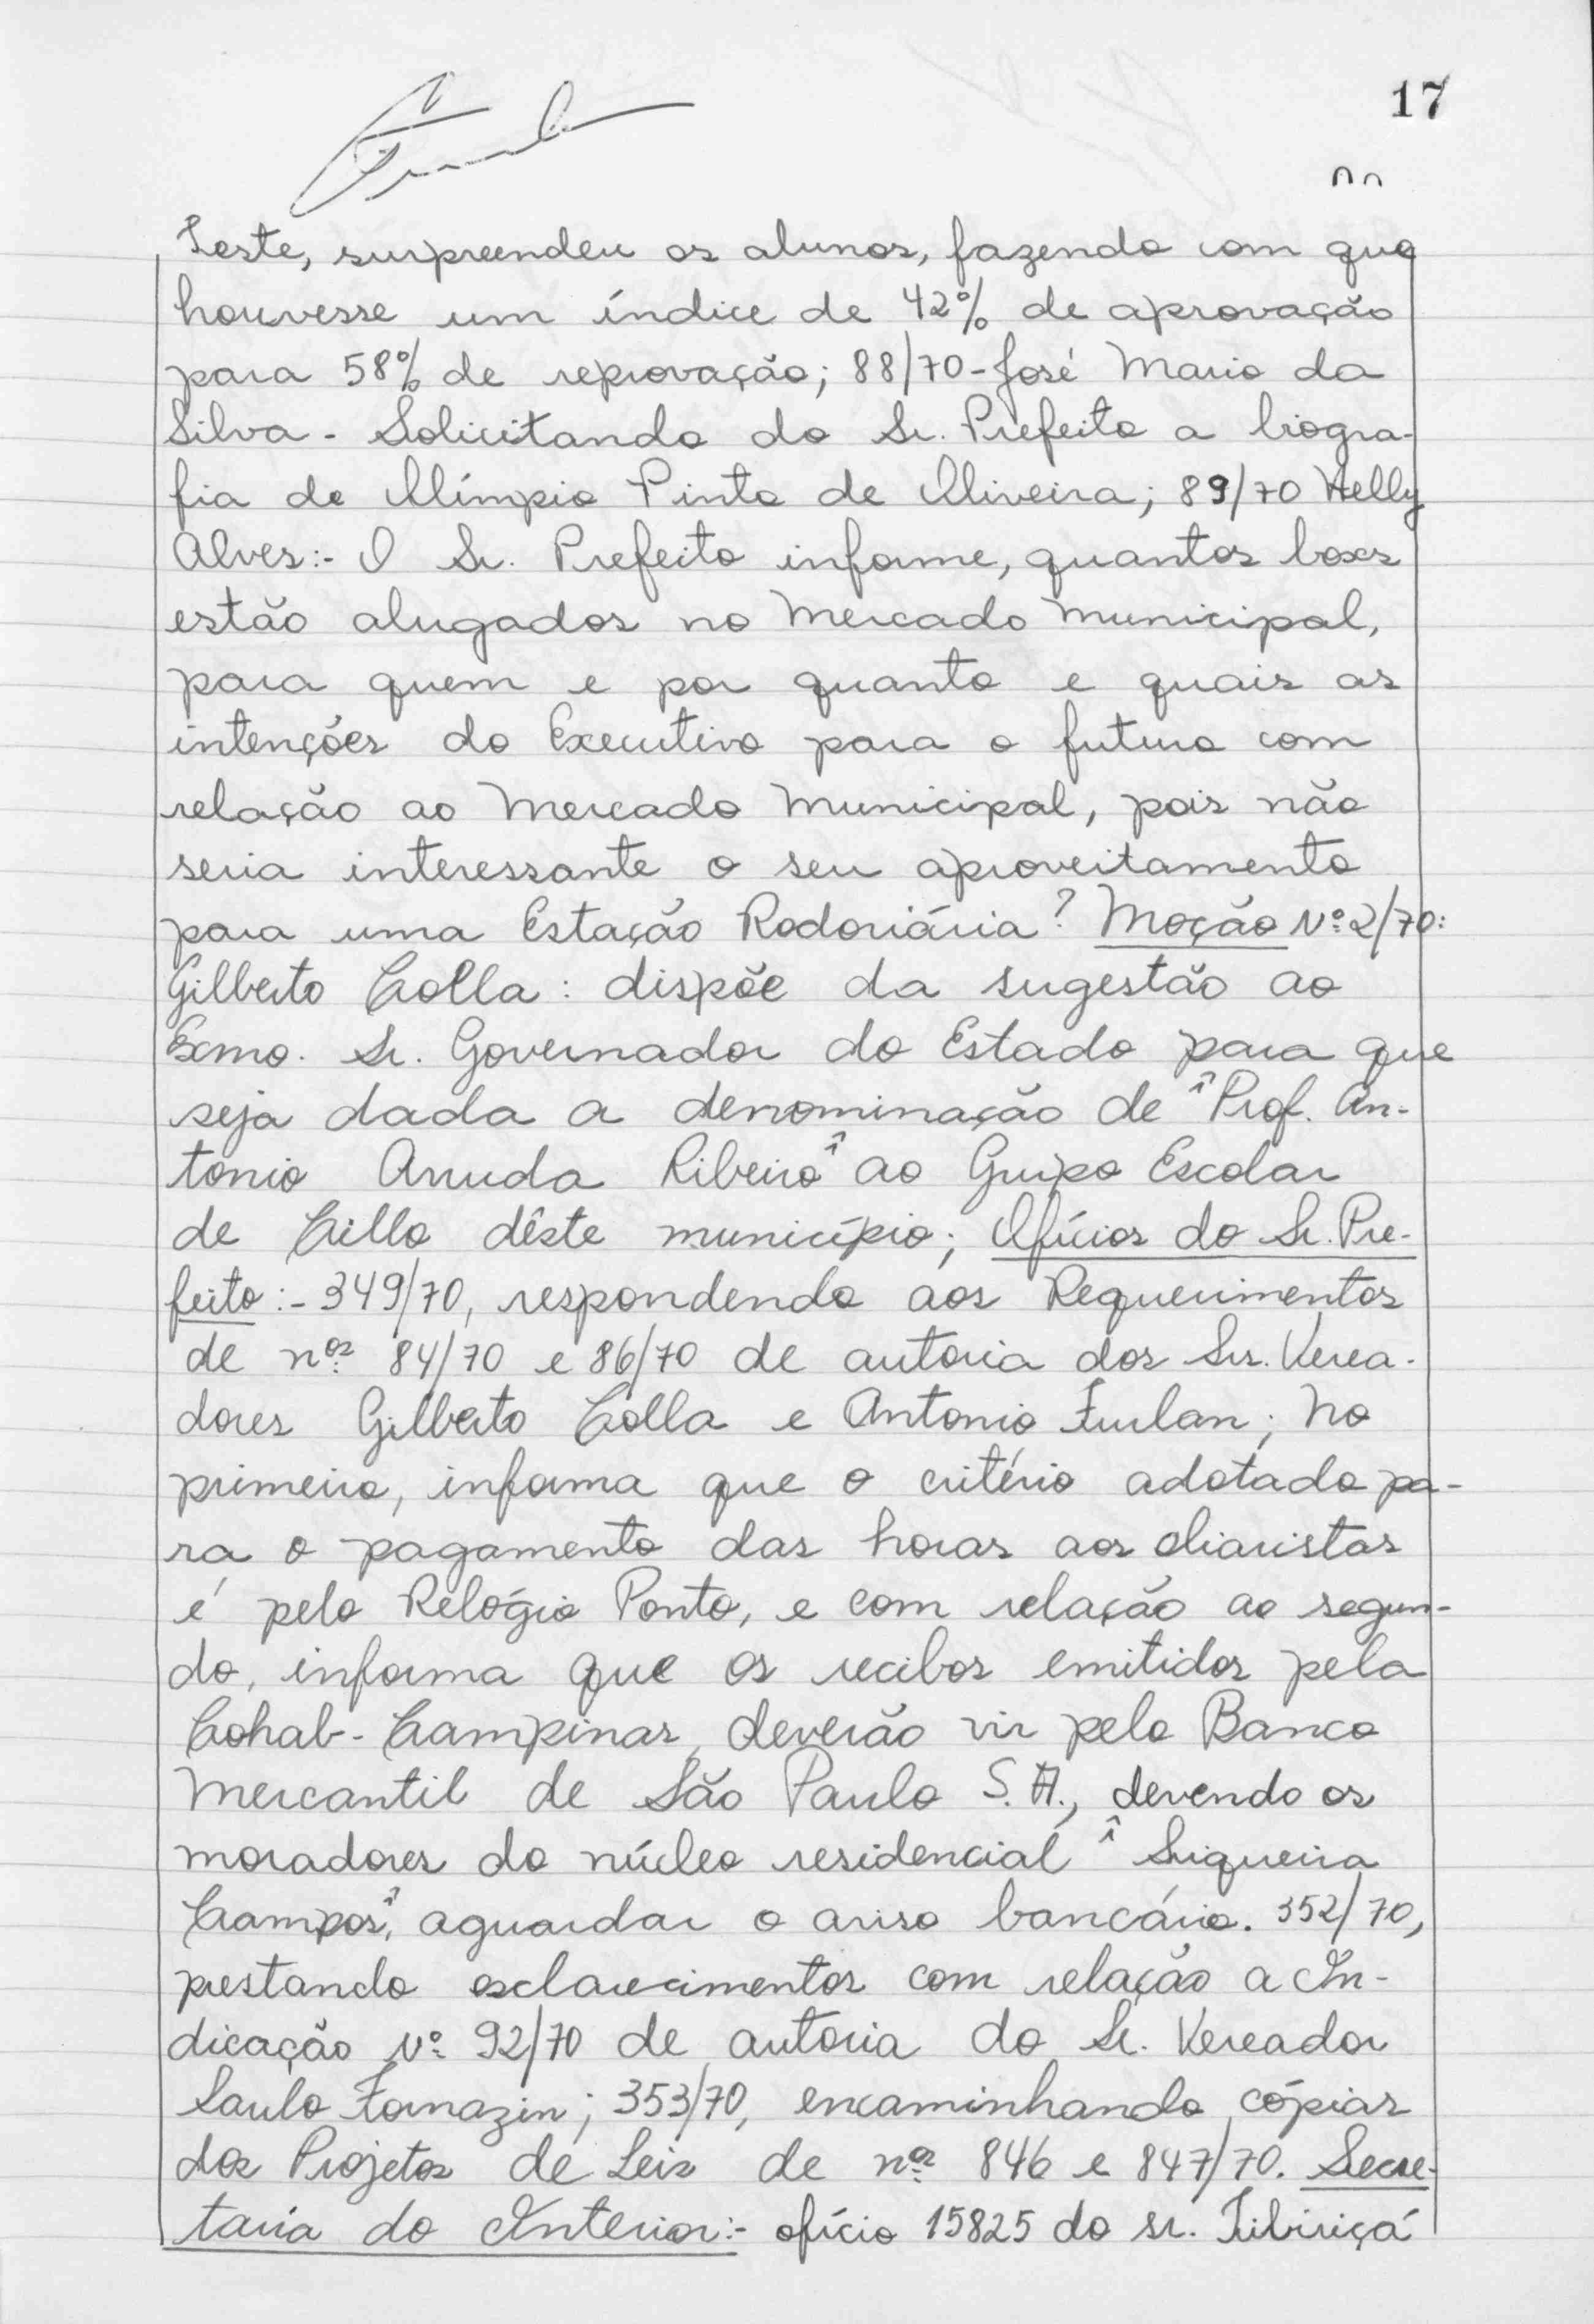 17
Teste, surpreendeu os alunos, fazendo com que
houvesse um índice de 42% de aprovação
para 58% de reprovação; 88/70 - José Mario da
Silva - Solicitando do Sr. Prefeito a biogra-
fia de Olímpio Pinto de Oliveira; 89/70 Helly
Alves:- O Sr. Prefeito informe, quantos boxes
estão alugados no Mercado Municipal,
para quem e por quanto e quais as
intenções do Executivo para o futuro com
relação ao Mercado Municipal, pois não
seria interessante o seu aproveitamento
para uma Estação Rodoviária? Moção Nº 2/70:
Gilberto Colla: dispõe da sugestão ao
Exmo. Sr. Governador do Estado para que
seja dada a denominação de "Prof. An-
tonio Arruda Ribeiro" ao Grupo Escolar
de Cillo dêste município; Ofícios do Sr. Pre-
feito:- 349/70, respondendo aos Requerimentos
de nºs 84/70 e 86/70 de autoria dos Srs. Verea-
dores Gilberto Colla e Antonio Furlan; No
primeiro, informa que o critério adotado pa-
ra o pagamento das horas aos diaristas
é pelo Relógio Ponto, e com relação ao segun-
do, informa que os recibos emitidos pela
Cohab - Campinas, deverão vir pelo Banco
Mercantil de São Paulo S.A., devendo os
moradores do núcleo residencial " Siqueira
Campos", aguardar o aviso bancário. 352/70,
prestando esclarecimentos com relação a In-
dicação Nº 92/70 de autoria do Sr. Vereador
Saulo Fornazin; 353/70, encaminhando cópias
dos Projetos de Leis de nºs 846 e 847/70. Secre-
taria do Interior:- ofício 15825 do sr. Tibiriçá